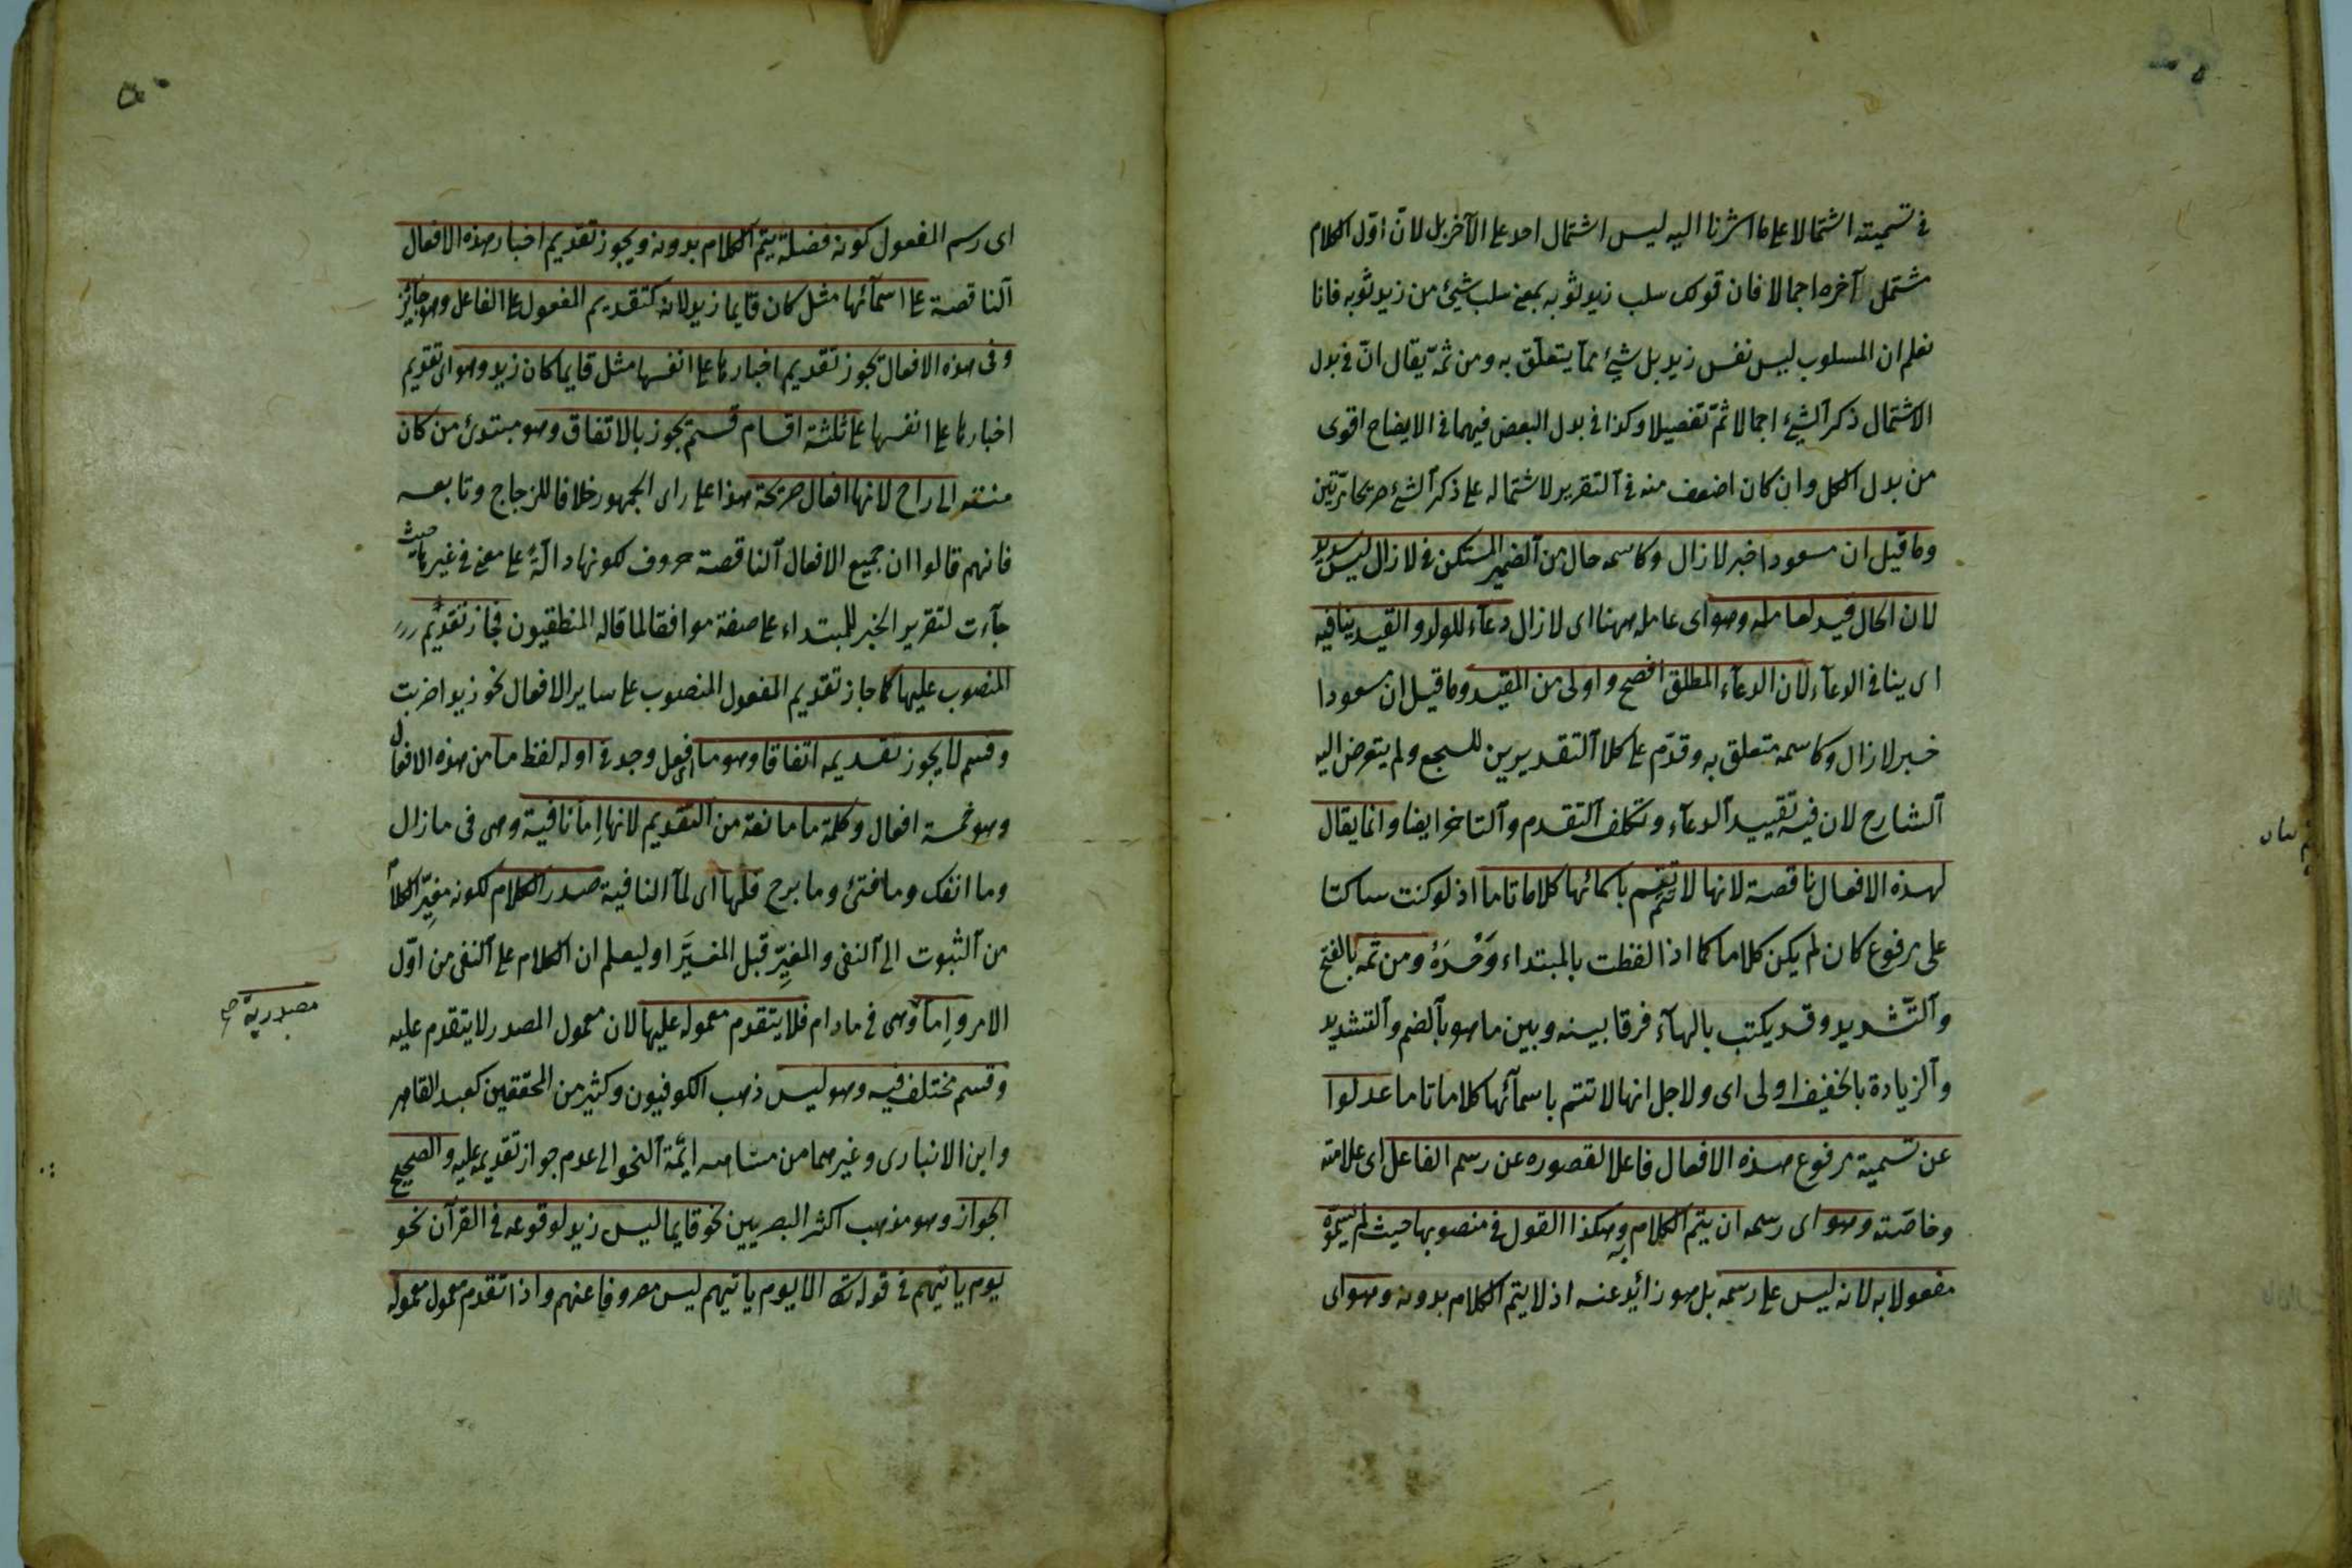 في تسميته اشتمالا على ما اشرنا اليه ليس اشتمال احد على الآخر بل لانّ اوّل الكلام
مشتمل آخره اجمالا فان قولك سلب زيد ثوبه بمعنى سلب شيئ من زيد ثوبه فانا
نعلم ان المسلوب ليس نفس زيد بل شيئ ممّا يتعلّق به ومن ثمّ يقال انّ في بدل
الاشتمال ذكر الشيئ اجمالا ثمّ تفصيلا وكذا في بدل البعض فيهما في الايضاح اقوى
من بدل الكل وان كان اضعف منه في التقرير لاشتماله على ذكر الشئ صريحا مرّتين
وما قيل ان مسعودا خبر لازال وكاسمه حال من الضمير المستكن في لازال ليس بسديد
لان الحال قيد لعامله وهو اى عامله ههنا اى لازال دعآء للولد والقيد ينافيه
اى ينافى الدعآء لان الدعآء المطلق افصح واولى من المقيد وما قيل ان مسعودا
خبر لازال وكاسمه متعلق به وقدّم على كلا التقديرين للسجع ولم يتعرض اليه
الشارح لان فيه تقييد الدعآء وتكلف التقدم والتاخر ايضا وانما يقال
لهذه الافعال ناقصة لانها لا تتم باسمائها كلاما تاما اذ لو كنت ساكتا
على مرفوع كان لم يكن كلاما كما اذا لفظت بالمبتداء وَحْدَهُ ومن ثمه بالفتح
والتّشديد وقد يكتب بالهآء فرقا بينه وبين ما هو بالضم والتشديد
والزيادة بالخفيف اولى اى ولاجل انها لا تتم باسمآئها كلاما تاما عدلوا
عن تسمية مرفوع هذه الافعال فاعلا لقصوره عن رسم الفاعل اى علامته
وخاصّته وهو اى رسمه ان يتم الكلام به وهكذا القول في منصوبها حيث لم يسمّوه
مفعولا به لانه ليس على رسمه بل هو زائد عنه اذ لا يتم الكلام بدونه وهو اى
اى رسم المفعول كونه فضلة يتم الكلام بدونه ويجوز تقديم اخبار هذه الافعال
الناقصة على اسمآئها مثل كان قايما زيد لانه كتقديم المفعول على الفاعل وهو جآئز
وفى هذه الافعال يجوز تقديم اخبارها على انفسها مثل قايما كان زيد وهو اى تقديم
اخبارها على انفسها على ثلثة اقسام قسم يجوز بالاتفاق وهو مبتدئ من كان
منته الى راح لانها افعال صريحة هذا على راى الجمهور خلافا للزجاج وتابعه
فانهم قالوا ان جميع الافعال الناقصة حروف لكونها دالّةً على معنى في غيرها حيث
جآءت لتقرير الخبر للمبتداء على صفة موافقا لما قاله المنطقيون فجاز تقديم
المنصوب عليها كما جاز تقديم المفعول المنصوب على ساير الافعال نحو زيدا ضربت
وقسم لا يجوز تقديمه اتفاقا وهو ما اى فعل وجد في اوله لفظ ما من هذه الافعال
وهو خمسة افعال وكلمة ما مانعة من التقديم لانها اِما نافية وهى فى مازال
وما انفك وما فتئ وما برح فلها اى لما النافية صدر الكلام لكونه مغيِّر الكلام
من الثبوت الى النفى والمغيِّر قبل المغيَّر او ليعلم ان الكلام على النفى من اوّل
الامر واِما وهى في مادام فلا يتقدم معموله عليها لان معمول المصدر لا يتقدم عليه
مصدرية صح
وقسم مختلف فيه وهو ليس ذهب الكوفيون وكثير من المحققين كعبد القاهر
وابن الانبارى وغيرهما من مشاهير ايّمة النحو الى عدم جواز تقديمه عليه والصحيح
الجواز وهو مذهب اكثر البصريين نحو قايما ليس زيد لوقوعه في القرآن نحو
يوم ياتيهم في قوله تعالى الا يوم ياتيهم ليس مصروفا عنهم واذا تقدم معمول معموله